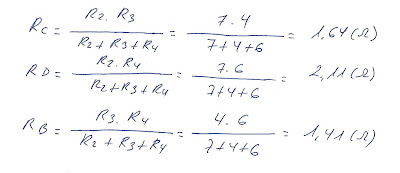 Rc = R2 . R3 / R2 + R3 + R4 = 7 . 4 / 7+4+6 = 1,64 (Ω)
RD = R2 . R4 / R2 + R3 + R4 = 7 . 6 / 7+4+6 = 2,11 (Ω)
RB = R3 . R4 / R2 + R3 + R4 = 4 . 6 / 7+4+6 = 1,41 (Ω)